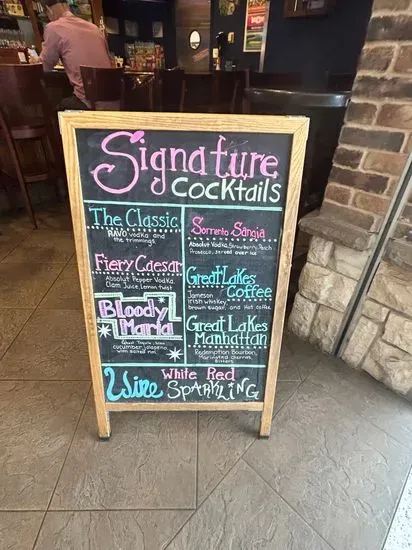 Signature
Cocktails
The Classic
RAVO Vodka and
the trimmings
Fiery Caesar
Absolut Pepper Vodka,
Clam Juice, Lemon twist
Bloody
Maria
Ghost Tequila,
cucumber Jalapeno,
with salted rim
Sorrento Sangia
Absolut Vodka, Strawberry, Peach
Prosecco, served over ice
Great Lakes
Coffee
Jameson
Irish whiskey,
brown sugar, and
Great Lakes
Manhattan
Redemption Bourbon,
Marinated cherries,
Bitters
Wine White Red
Sparkling